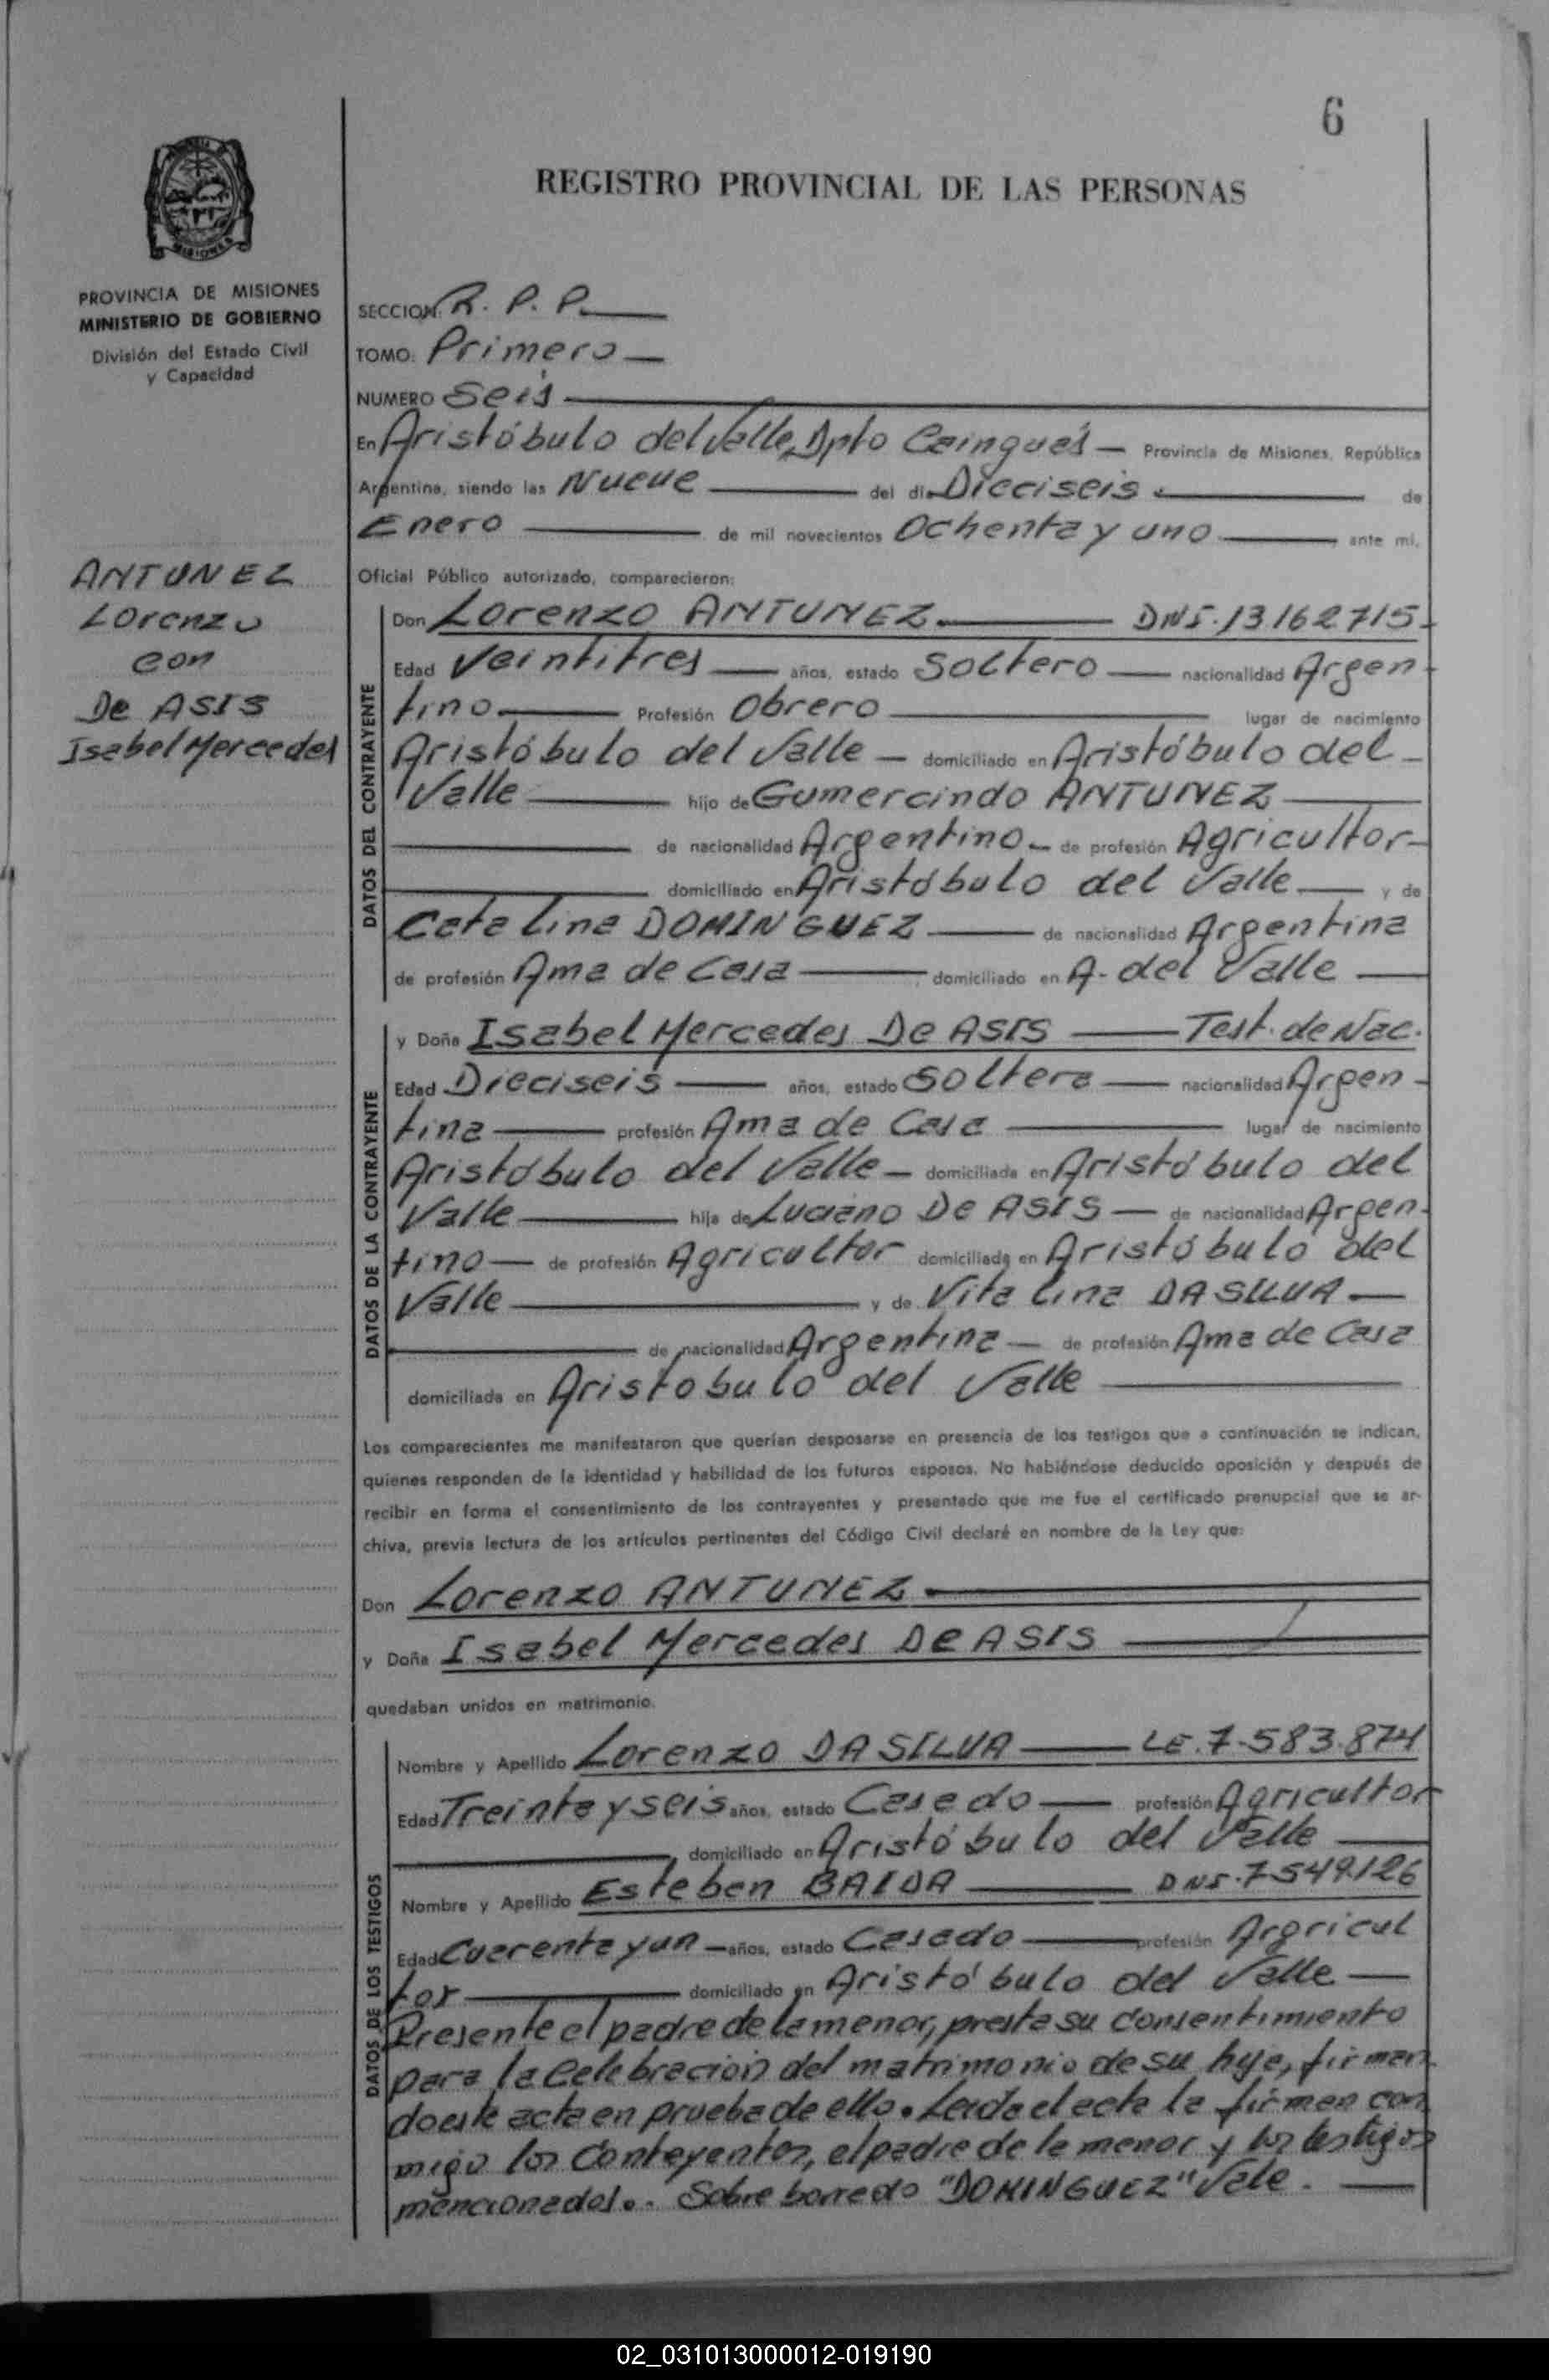 6
REGISTRO PROVINCIAL DE LAS PERSONAS
MISIONES
PROVINCIA DE MISIONES
MINISTERIO DE GOBIERNO
División del Estado Civil
y Capacidad
ANTUNEZ
Lorenzo
con
De ASIS
Isabel Mercedes
SECCION: R. P. P.
TOMO: Primero
NUMERO Seis
En Aristóbulo del Valle, Dpto Cainguás Provincia de Misiones, República
Argentina, siendo las Nueve del día Dieciseis de
Enero de mil novecientos Ochenta y uno ante mí,
Oficial Público autorizado, comparecieron:
DATOS DEL CONTRAYENTE
Don Lorenzo ANTUNEZ. DNI. 13162715.
Edad Veintitres años, estado Soltero nacionalidad Argen
tino Profesión Obrero lugar de nacimiento
Aristóbulo del Valle domiciliado en Aristóbulo del
Valle hijo de Gumercindo ANTUNEZ
de nacionalidad Argentino de profesión Agricultor
domiciliado en Aristóbulo del Valle y de
Catalina DOMINGUEZ de nacionalidad Argentina
de profesión Ama de Casa domiciliado en A. del Valle
DATOS DE LA CONTRAYENTE
y Doña Isabel Mercedes De ASIS Test. de Nac.
Edad Dieciseis años, estado Soltera nacionalidad Argen
tina profesión Ama de Casa lugar de nacimiento
Aristóbulo del Valle domiciliada en Aristóbulo del
Valle hija de Luciano De ASIS de nacionalidad Argen
tino de profesión Agricultor domiciliado en Aristóbulo del
Valle y de Vitalina DA SILVA
de nacionalidad Argentina de profesión Ama de Casa
domiciliada en Aristobulo del Valle
Los comparecientes me manifestaron que querían desposarse en presencia de los testigos que a continuación se indican,
quienes responden de la identidad y habilidad de los futuros esposos. No habiéndose deducido oposición y después de
recibir en forma el consentimiento de los contrayentes y presentado que me fue el certificado prenupcial que se ar-
chiva, previa lectura de los artículos pertinentes del Código Civil declaré en nombre de la Ley que:
Don Lorenzo ANTUNEZ
y Doña Isabel Mercedes De ASIS
quedaban unidos en matrimonio.
DATOS DE LOS TESTIGOS
Nombre y Apellido Lorenzo DA SILVA LE. 7.583.874
Edad Treinta y seis años, estado Casado profesión Agricultor
domiciliado en Aristóbulo del Valle
Nombre y Apellido Esteban BAIDA DNI. 7549.126
Edad Cuarenta y un años, estado Casado profesión Argricul
tor domiciliado en Aristóbulo del Valle
Presente el padre de la menor, presta su consentimiento
para la Celebración del matrimonio de su hija, firman
do este acta en prueba de ello. Leida el acta la firman con
migo los Conteyentes, el padre de la menor y los testigos
mencionados.. Sobre borrado "DOMINGUEZ" Vale.
02_031013000012-019190